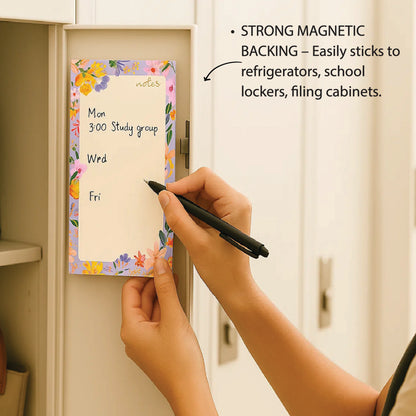 • STRONG MAGNETIC
BACKING – Easily sticks to
refrigerators, school
lockers, filing cabinets.
notes
Mon
3:00 Study group
Wed
Fri